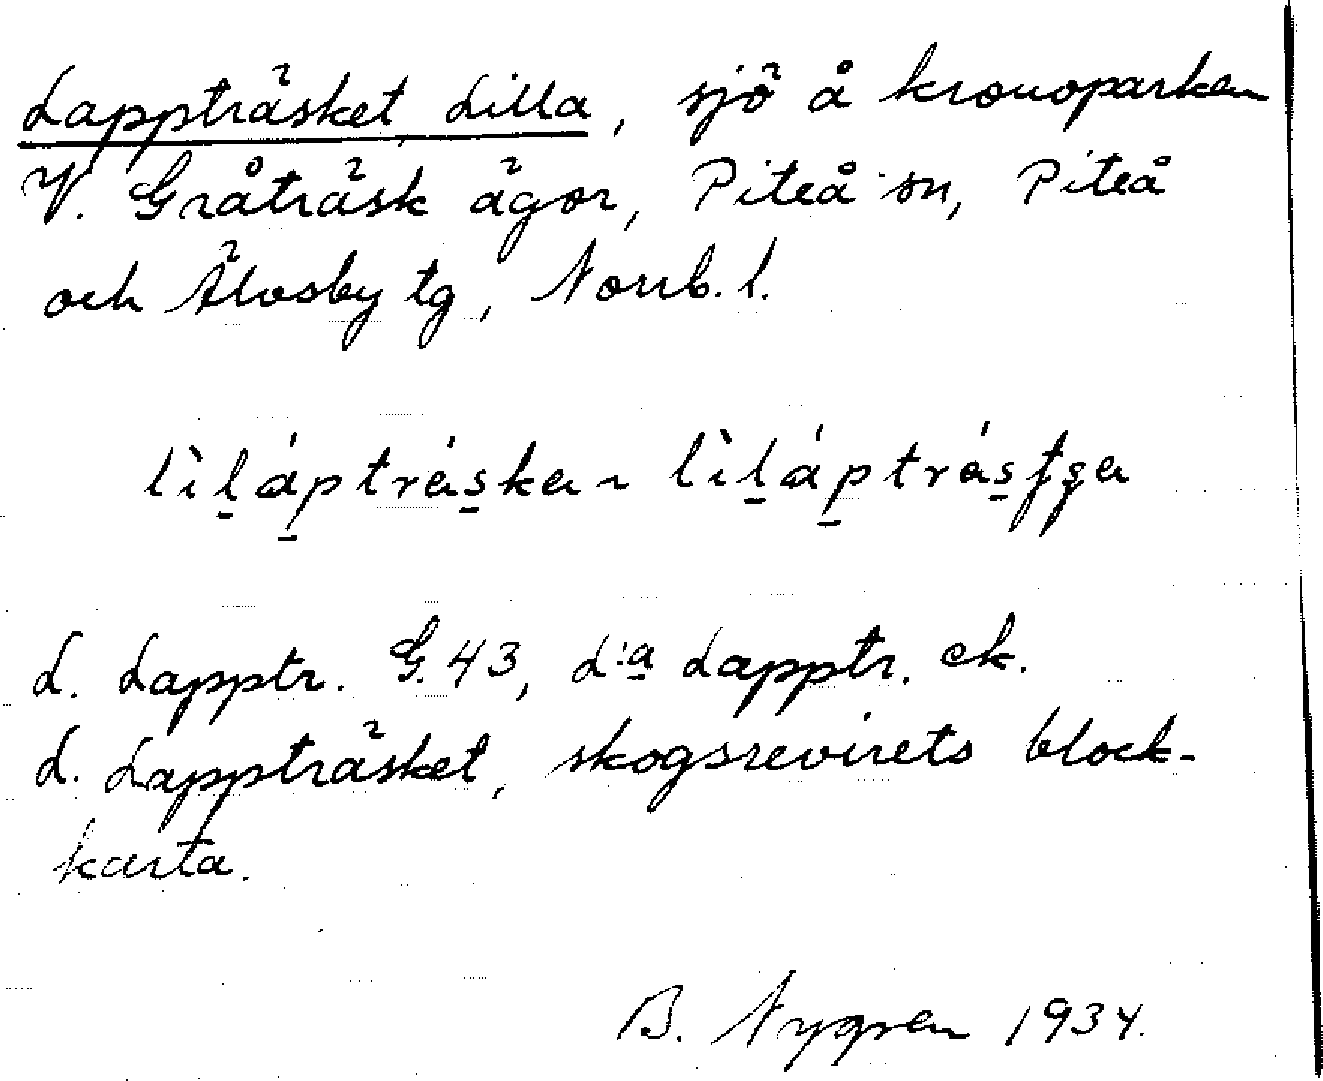 Lappträsket, Lilla, sjö å kronoparken
V. Gråträsk ägor, Piteå sn, Piteå
och Älvsby tg, Norrb. l.
lìl̠áp̠tràs̠ka ~ lìl̠áp̠tràs̠ʄʓa
L. Lapptr. G. 43, L:a Lapptr. ek.
L. Lappträsket, skogsrevirets block-
karta.
B. Nygren 1934.